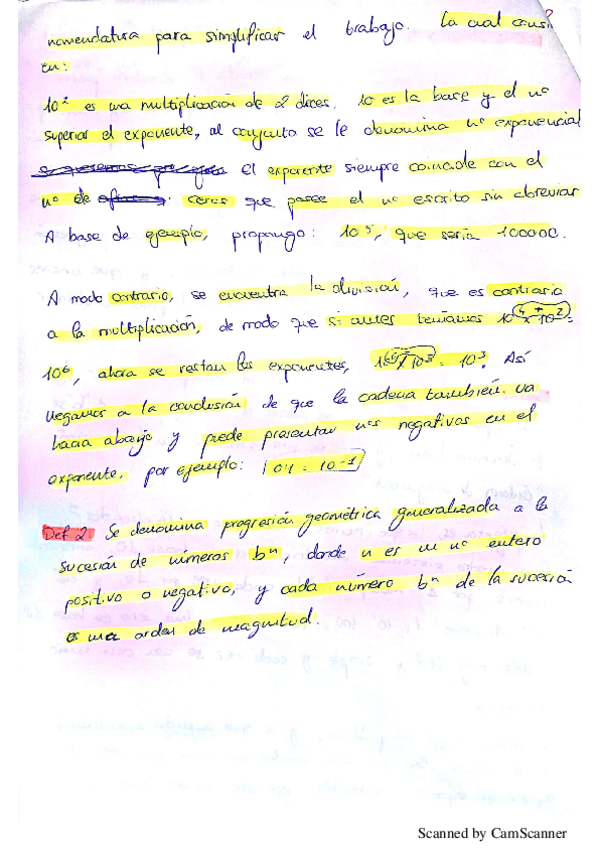 nomenclatura para simplificar el trabajo. La cual cons
en:
10² es una multiplicación de 2 dieces. 10 es la base y el nº
superior el exponente, al conjunto se le denomina nº exponencial
el exponente siempre coincide con el
nº de ceros que posee el nº escrito sin abreviar
A base de ejemplo, propongo: 10⁵, que sería 100000.
A modo contrario, se encuentra la división, que es contrario
a la multiplicación, de modo que si antes teníamos 10⁴ × 10² =
10⁶, ahora se restan los exponentes, 10³. Así
llegamos a la conclusión de que la cadena también va
hacia abajo y puede presentar nos negativos en el
exponente, por ejemplo: 0'1 = 10⁻¹
Def 2. Se denomina progresión geométrica generalizada a la
sucesión de números bⁿ, donde n es un nº entero
positivo o negativo, y cada número bⁿ de la sucesión
es una orden de magnitud.
Scanned by CamScanner